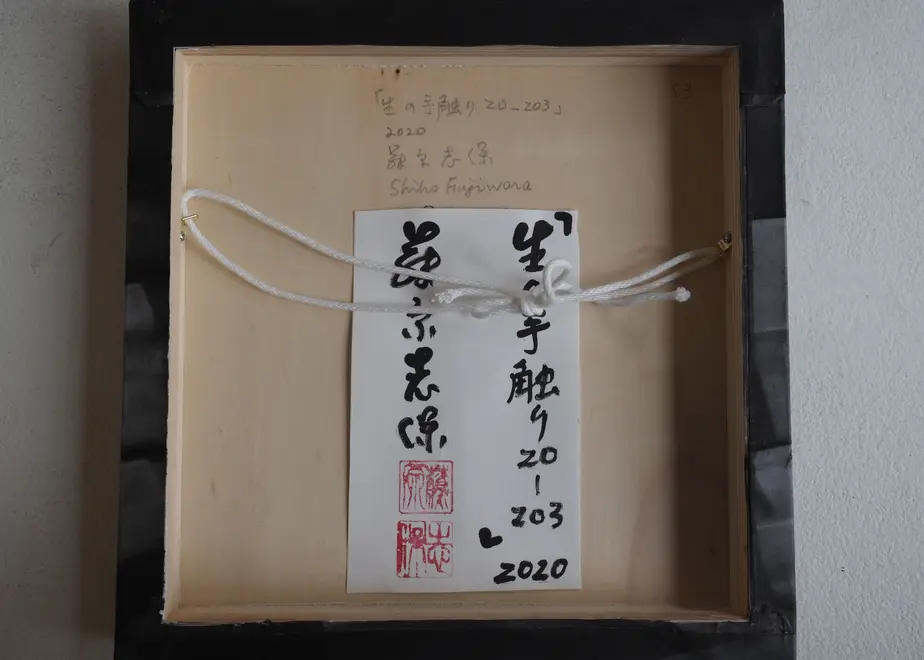 「生の手触り 20-203」
2020
藤原志保
Shiho Fujiwara
「生の手触り20-203」
2020
藤原志保
藤原
志保